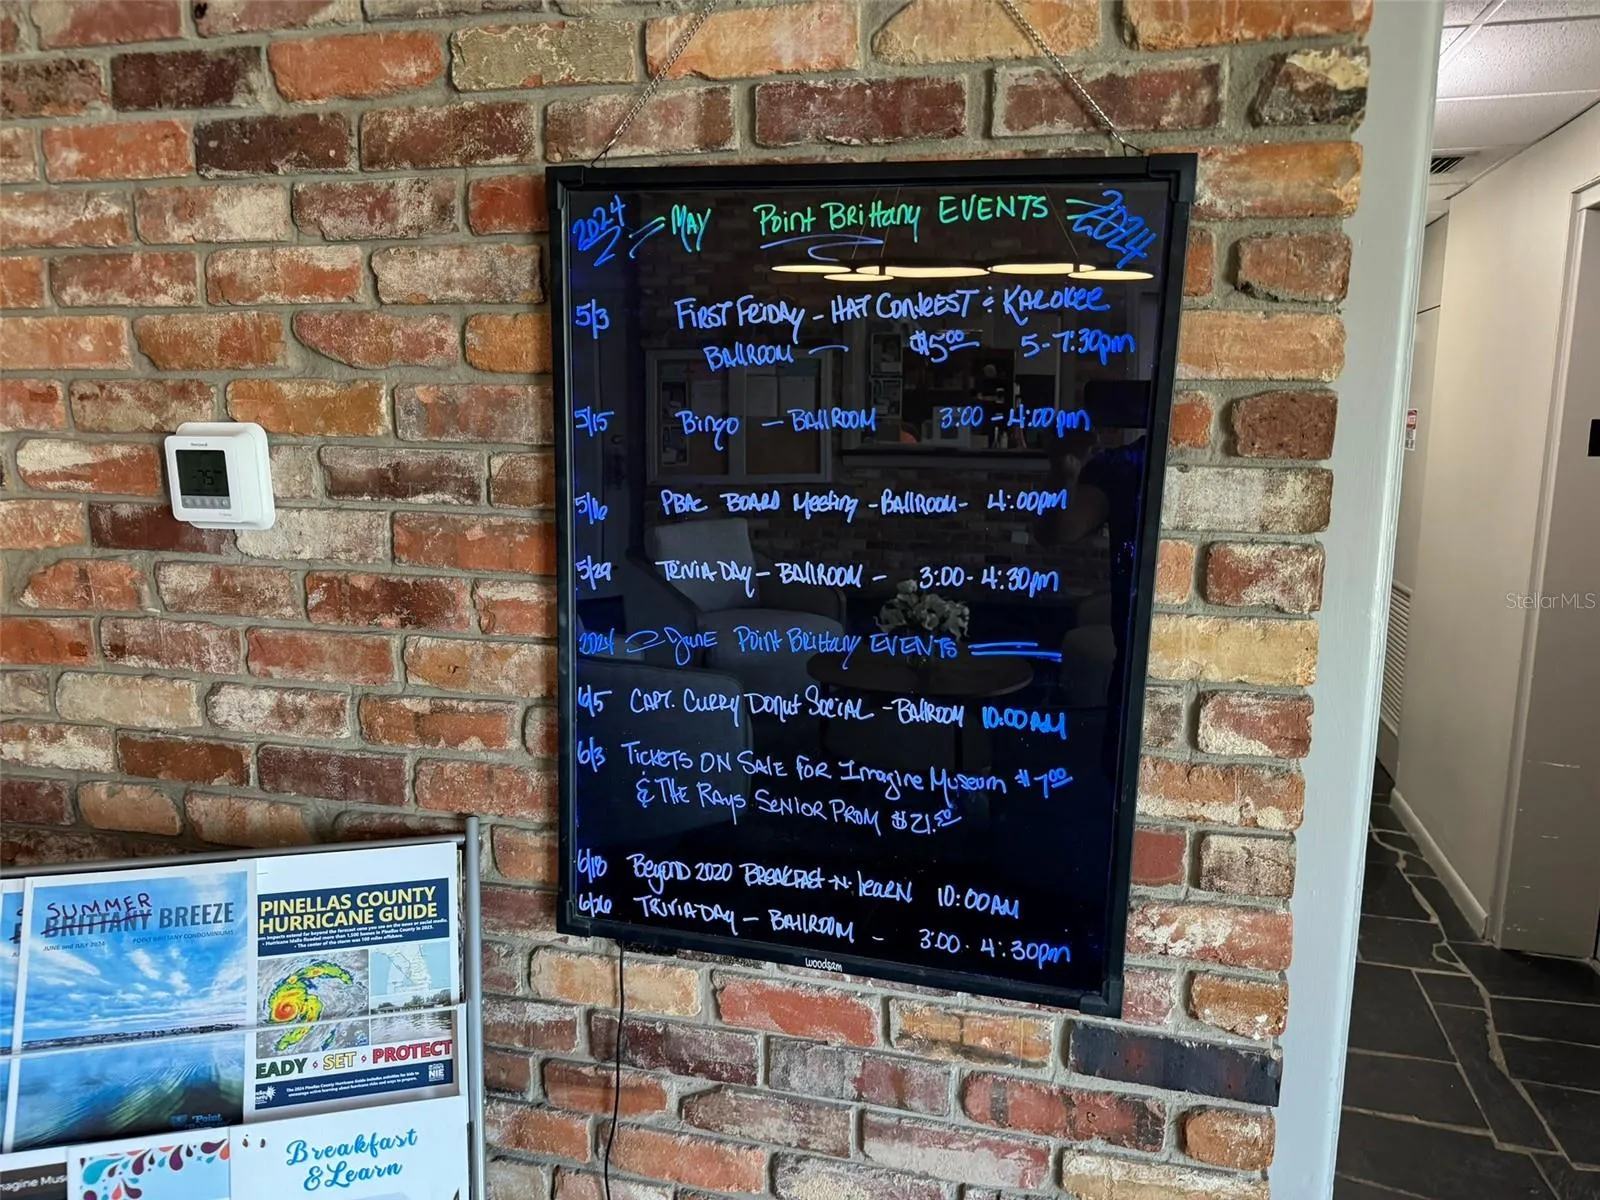 2024 MAY Point Brittany EVENTS 2024
5/3 FIRST FRIDAY - HAT CONTEST & KAROKEE
BALLROOM - $5.00 5-7:30pm
5/15 Bingo - BALLROOM 3:00 - 4:00pm
5/16 PBAC BOARD Meeting - BALLROOM - 4:00pm
5/29 TRIVIA DAY - BALLROOM - 3:00 - 4:30pm
2024 June Point Brittany EVENTS
6/5 CAPT. CURRY DONUT SOCIAL - BALLROOM 10:00 AM
6/3 TICKETS ON SALE FOR Imagine Museum $7.00
& THE RAYS SENIOR PROM $21.50
6/18 Beyond 2020 BREAKFAST-N-LEARN 10:00 AM
6/26 TRIVIA DAY - BALLROOM - 3:00 - 4:30pm
woodsam
Honeywell
75
SUMMER
BRITTANY BREEZE
JUNE and JULY 2024 POINT BRITTANY CONDOMINIUMS
Point
PINELLAS COUNTY
HURRICANE GUIDE
EADY • SET • PROTECT
NIE
Breakfast
& Learn
StellarMLS